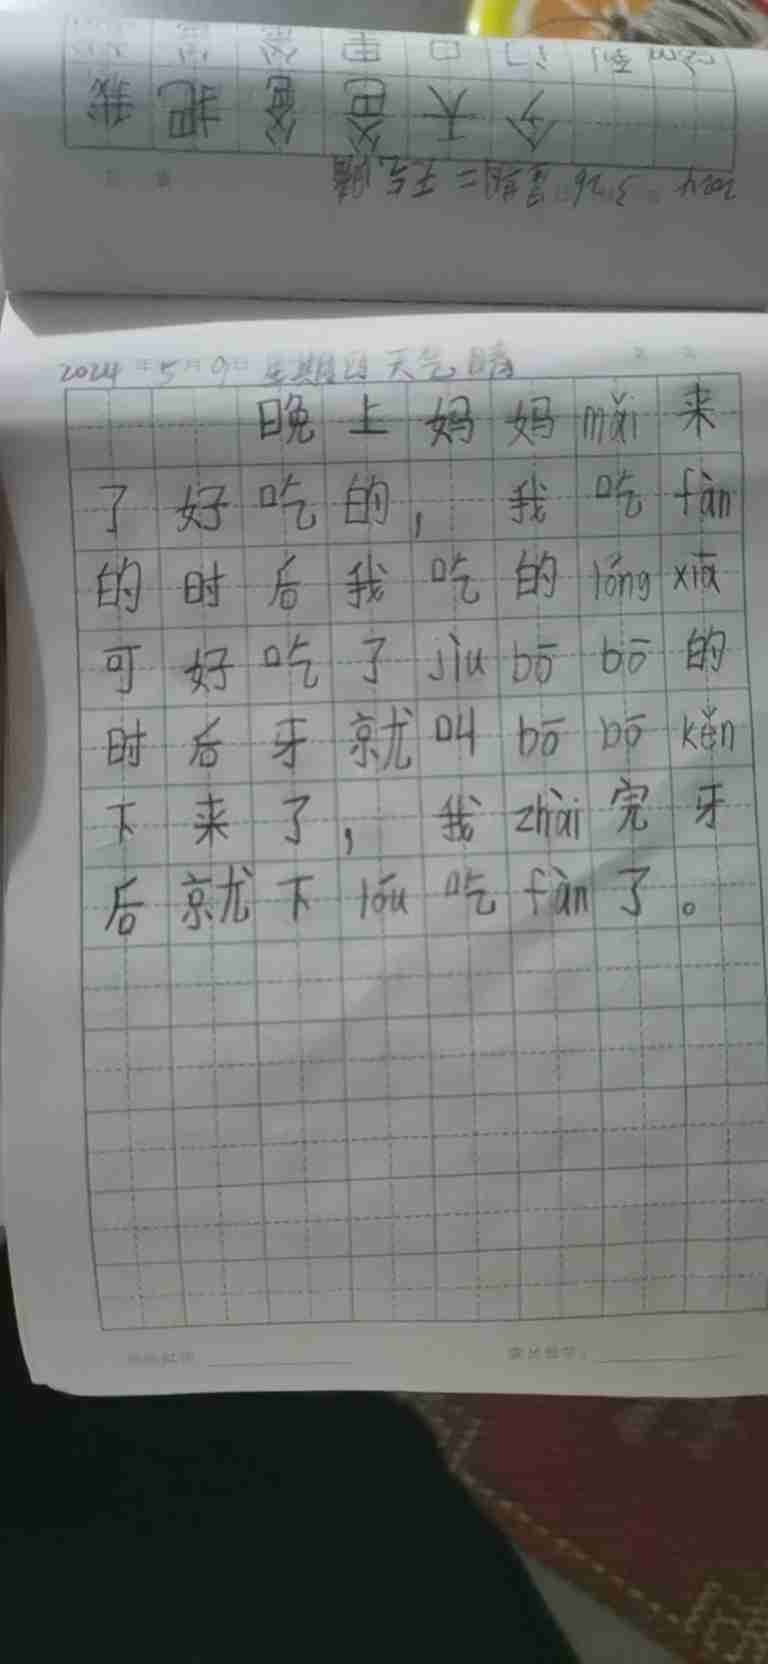 2024年5月9日 星期四 天气晴
晚上妈妈mǎi来
了好吃的，我吃fàn
的时后我吃的lóng xiā
可好吃了jiu bō bō的
时后牙就叫bō bō kěn
下来了，我zhài完牙
后就下lóu吃fàn了。
2024 3 26 星期二 天气晴
今天爸爸把我